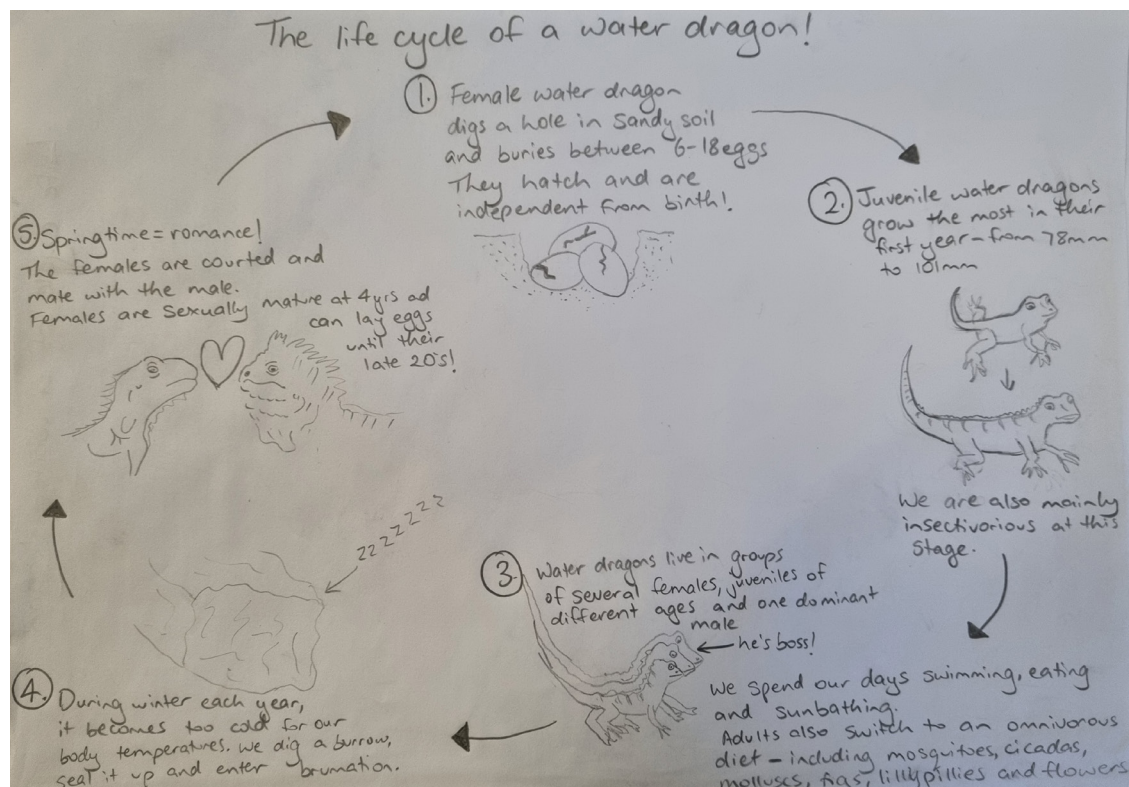 The life cycle of a water dragon!
1. Female water dragon
digs a hole in sandy soil
and buries between 6-18 eggs
They hatch and are
independent from birth!
2. Juvenile water dragons
grow the most in their
first year - from 78mm
to 101mm
We are also mainly
insectivorious at this
stage.
3. Water dragons live in groups
of several females, juveniles of
different ages and one dominant
male
he's boss!
We spend our days swimming, eating
and sunbathing.
Adults also switch to an omnivorous
diet - including mosquitoes, cicadas,
molluscs, figs, lillypillies and flowers
4. During winter each year,
it becomes too cold for our
body temperatures. We dig a burrow,
seal it up and enter brumation.
zzzzzzzz
5. Springtime = romance!
The females are courted and
mate with the male.
Females are sexually mature at 4yrs ad
can lay eggs
until their
late 20's!